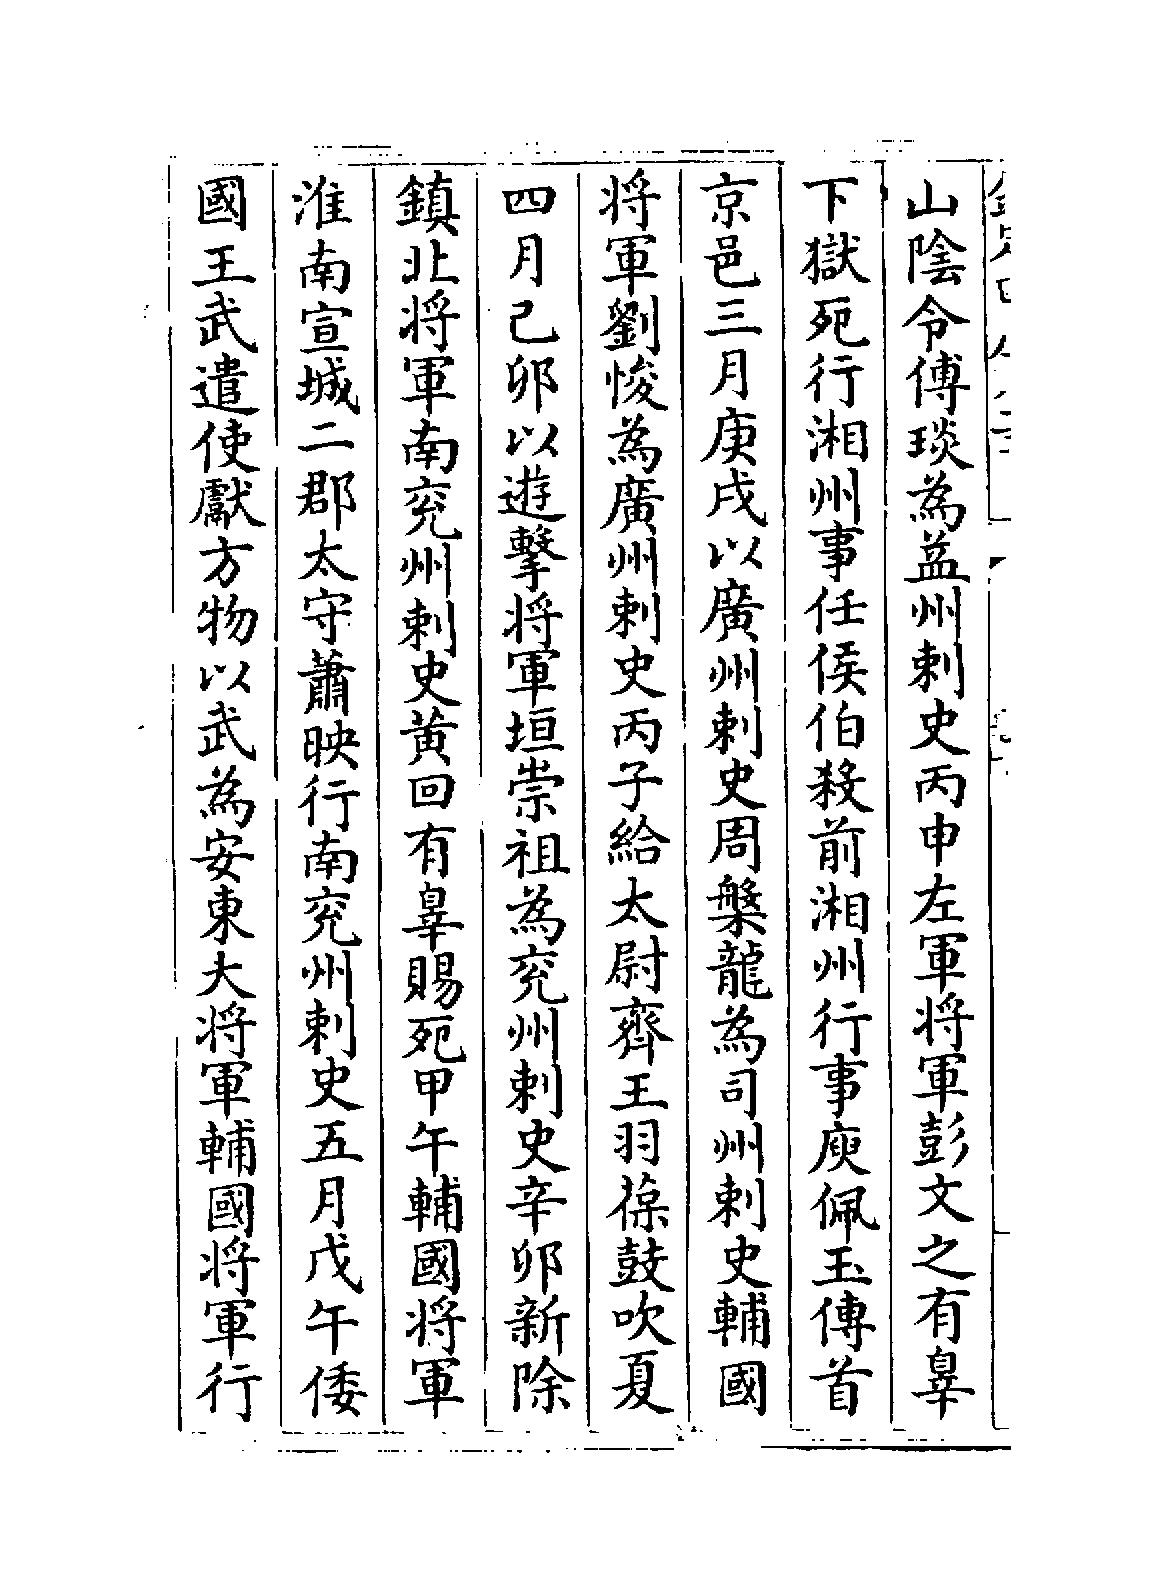 山陰令傅琰為益州刺史丙申左軍将軍彭文之有辠
下獄死行湘州事任侯伯殺前湘州行事庾佩玉傳首
京邑三月庚戌以廣州刺史周槃龍為司州刺史輔國
将軍劉悛為廣州刺史丙子給太尉齊王羽葆鼓吹夏
四月己卯以遊擊将軍垣崇祖為兖州刺史辛卯新除
鎮北将軍南兖州刺史黄回有辠賜死甲午輔國将軍
淮南宣城二郡太守蕭映行南兖州刺史五月戊午倭
國王武遣使獻方物以武為安東大将軍輔國将軍行